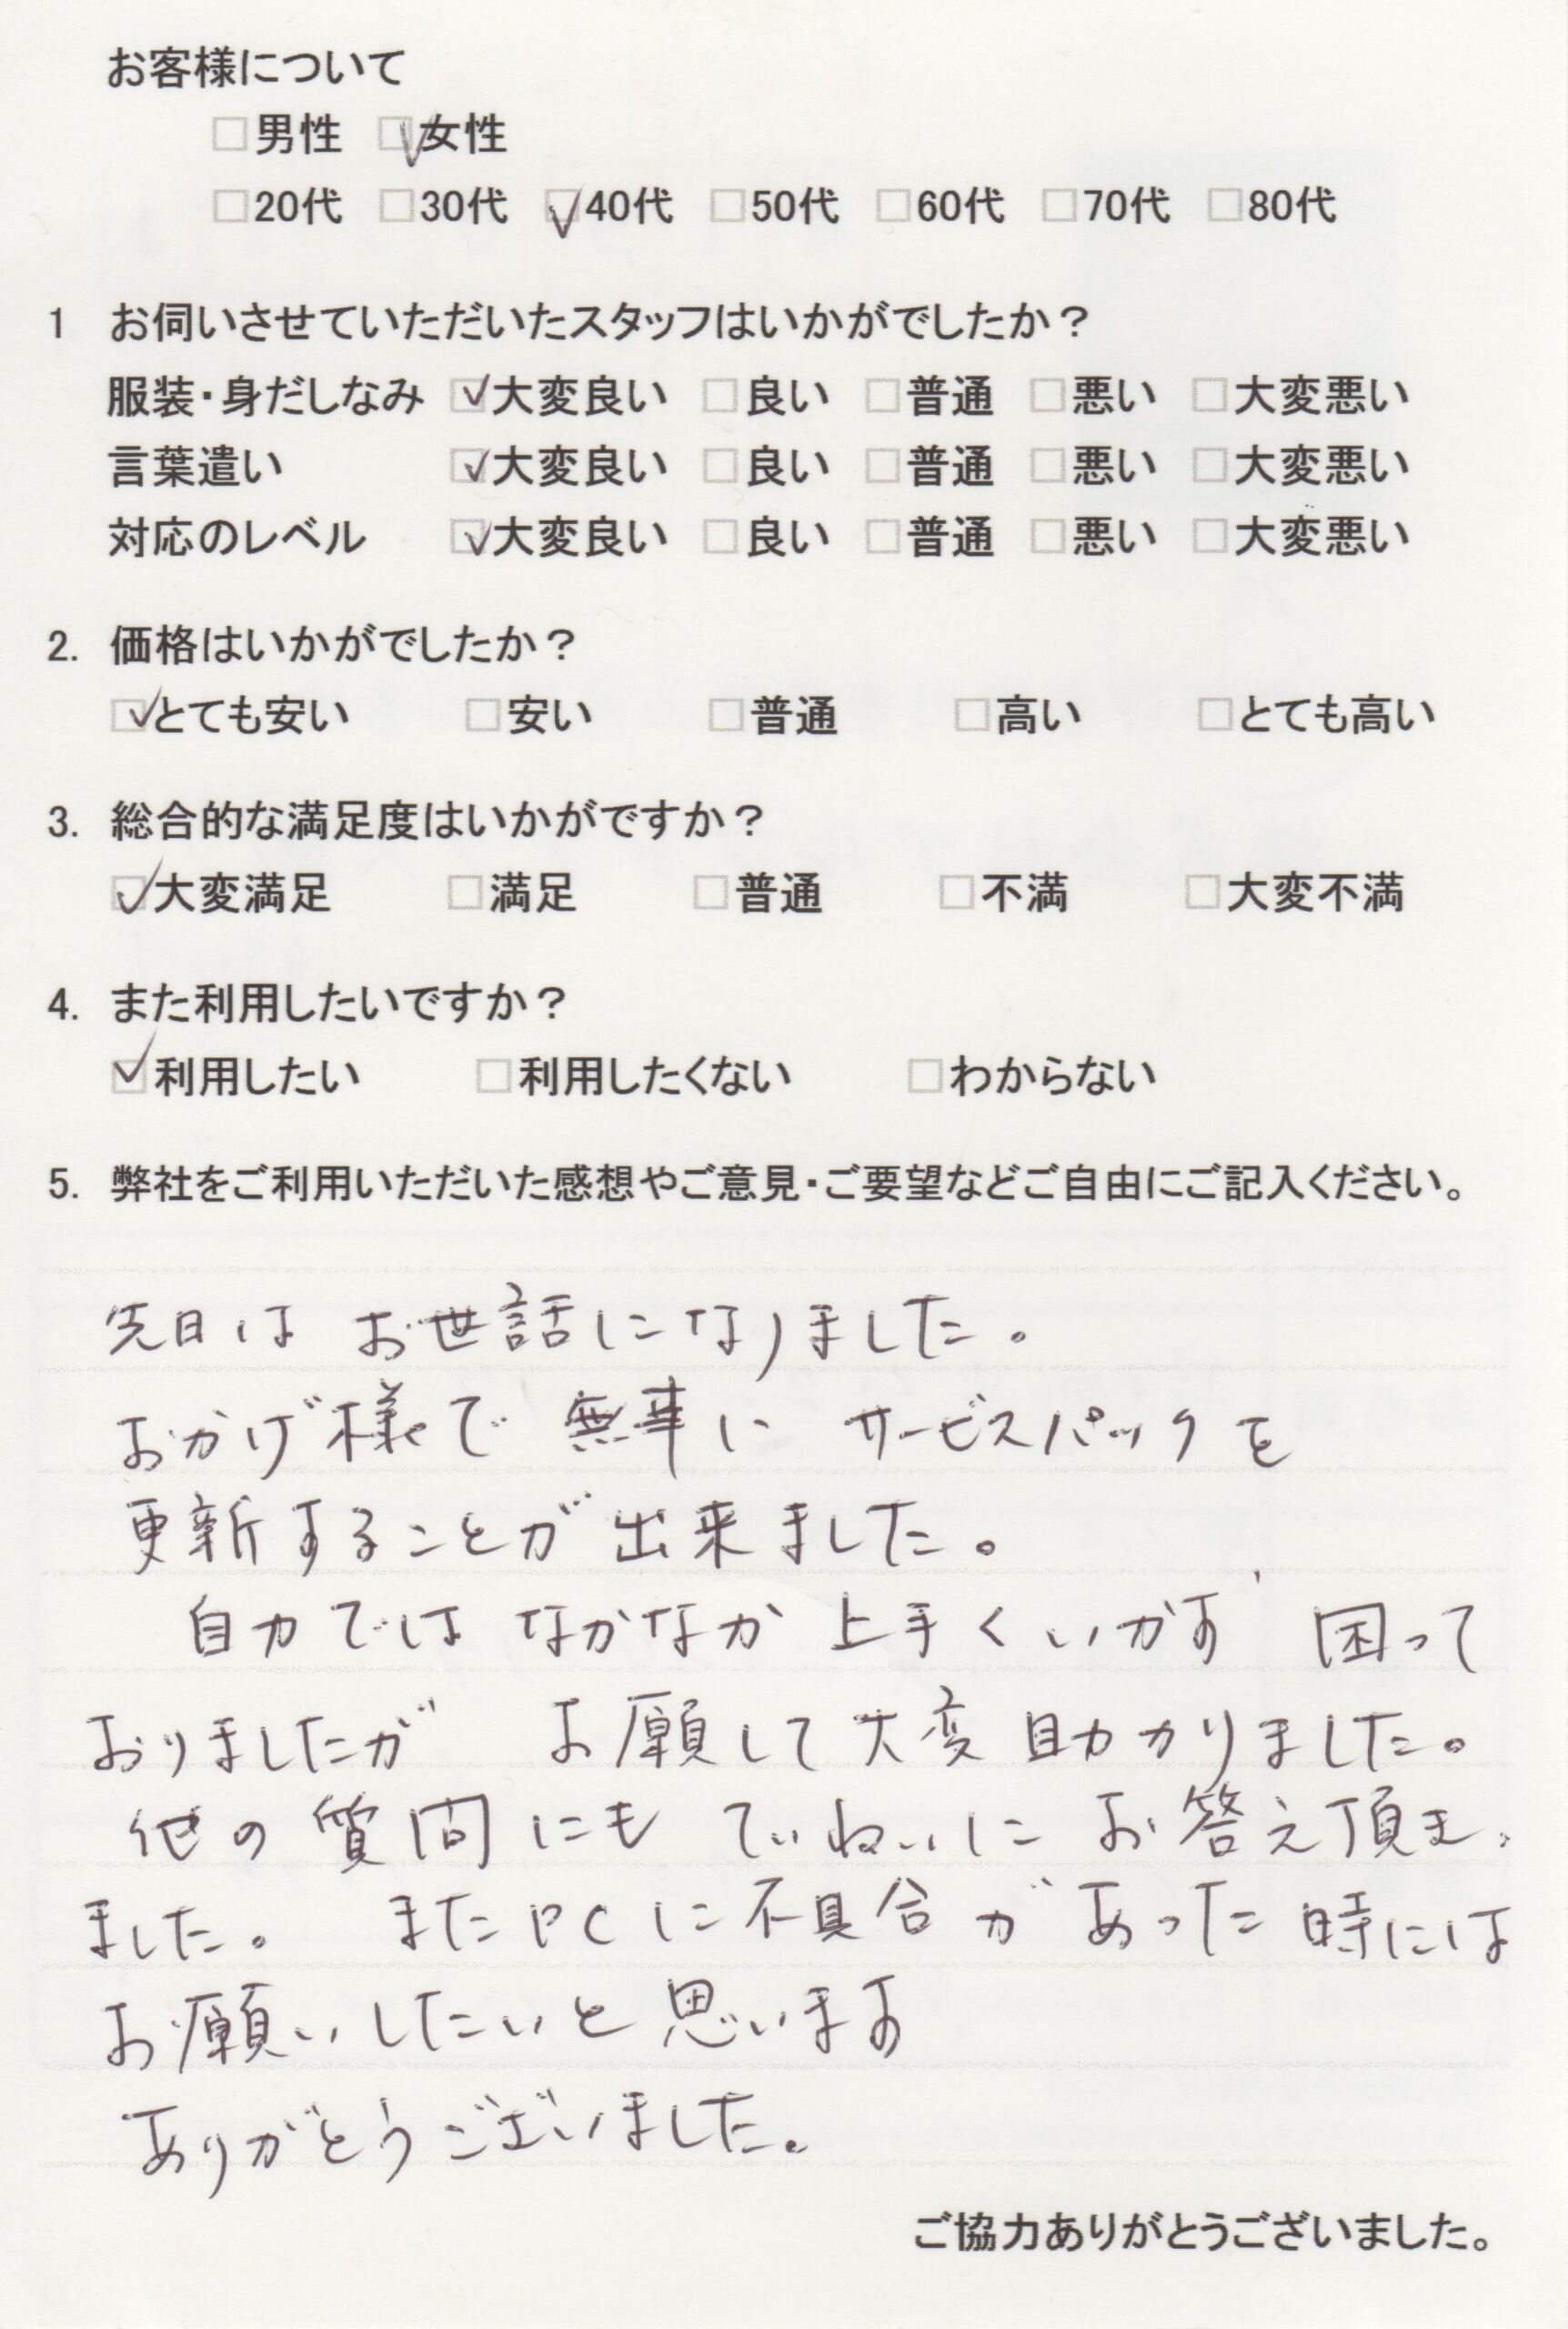 お客様について
□男性 ☑女性
□20代 □30代 ☑40代 □50代 □60代 □70代 □80代
1 お伺いさせていただいたスタッフはいかがでしたか？
服装・身だしなみ ☑大変良い □良い □普通 □悪い □大変悪い
言葉遣い ☑大変良い □良い □普通 □悪い □大変悪い
対応のレベル ☑大変良い □良い □普通 □悪い □大変悪い
2. 価格はいかがでしたか？
☑とても安い □安い □普通 □高い □とても高い
3. 総合的な満足度はいかがですか？
☑大変満足 □満足 □普通 □不満 □大変不満
4. また利用したいですか？
☑利用したい □利用したくない □わからない
5. 弊社をご利用いただいた感想やご意見・ご要望などご自由にご記入ください。
先日は お世話になりました。
おかげ様で 無事に サービスパックを
更新することが出来ました。
自力では なかなか 上手くいかず 困って
おりましたが お願して大変助かりました。
他の質問にも ていねいに お答え頂き
ました。 またPCに不具合があった時には
お願いしたいと思います
ありがとうございました。
ご協力ありがとうございました。